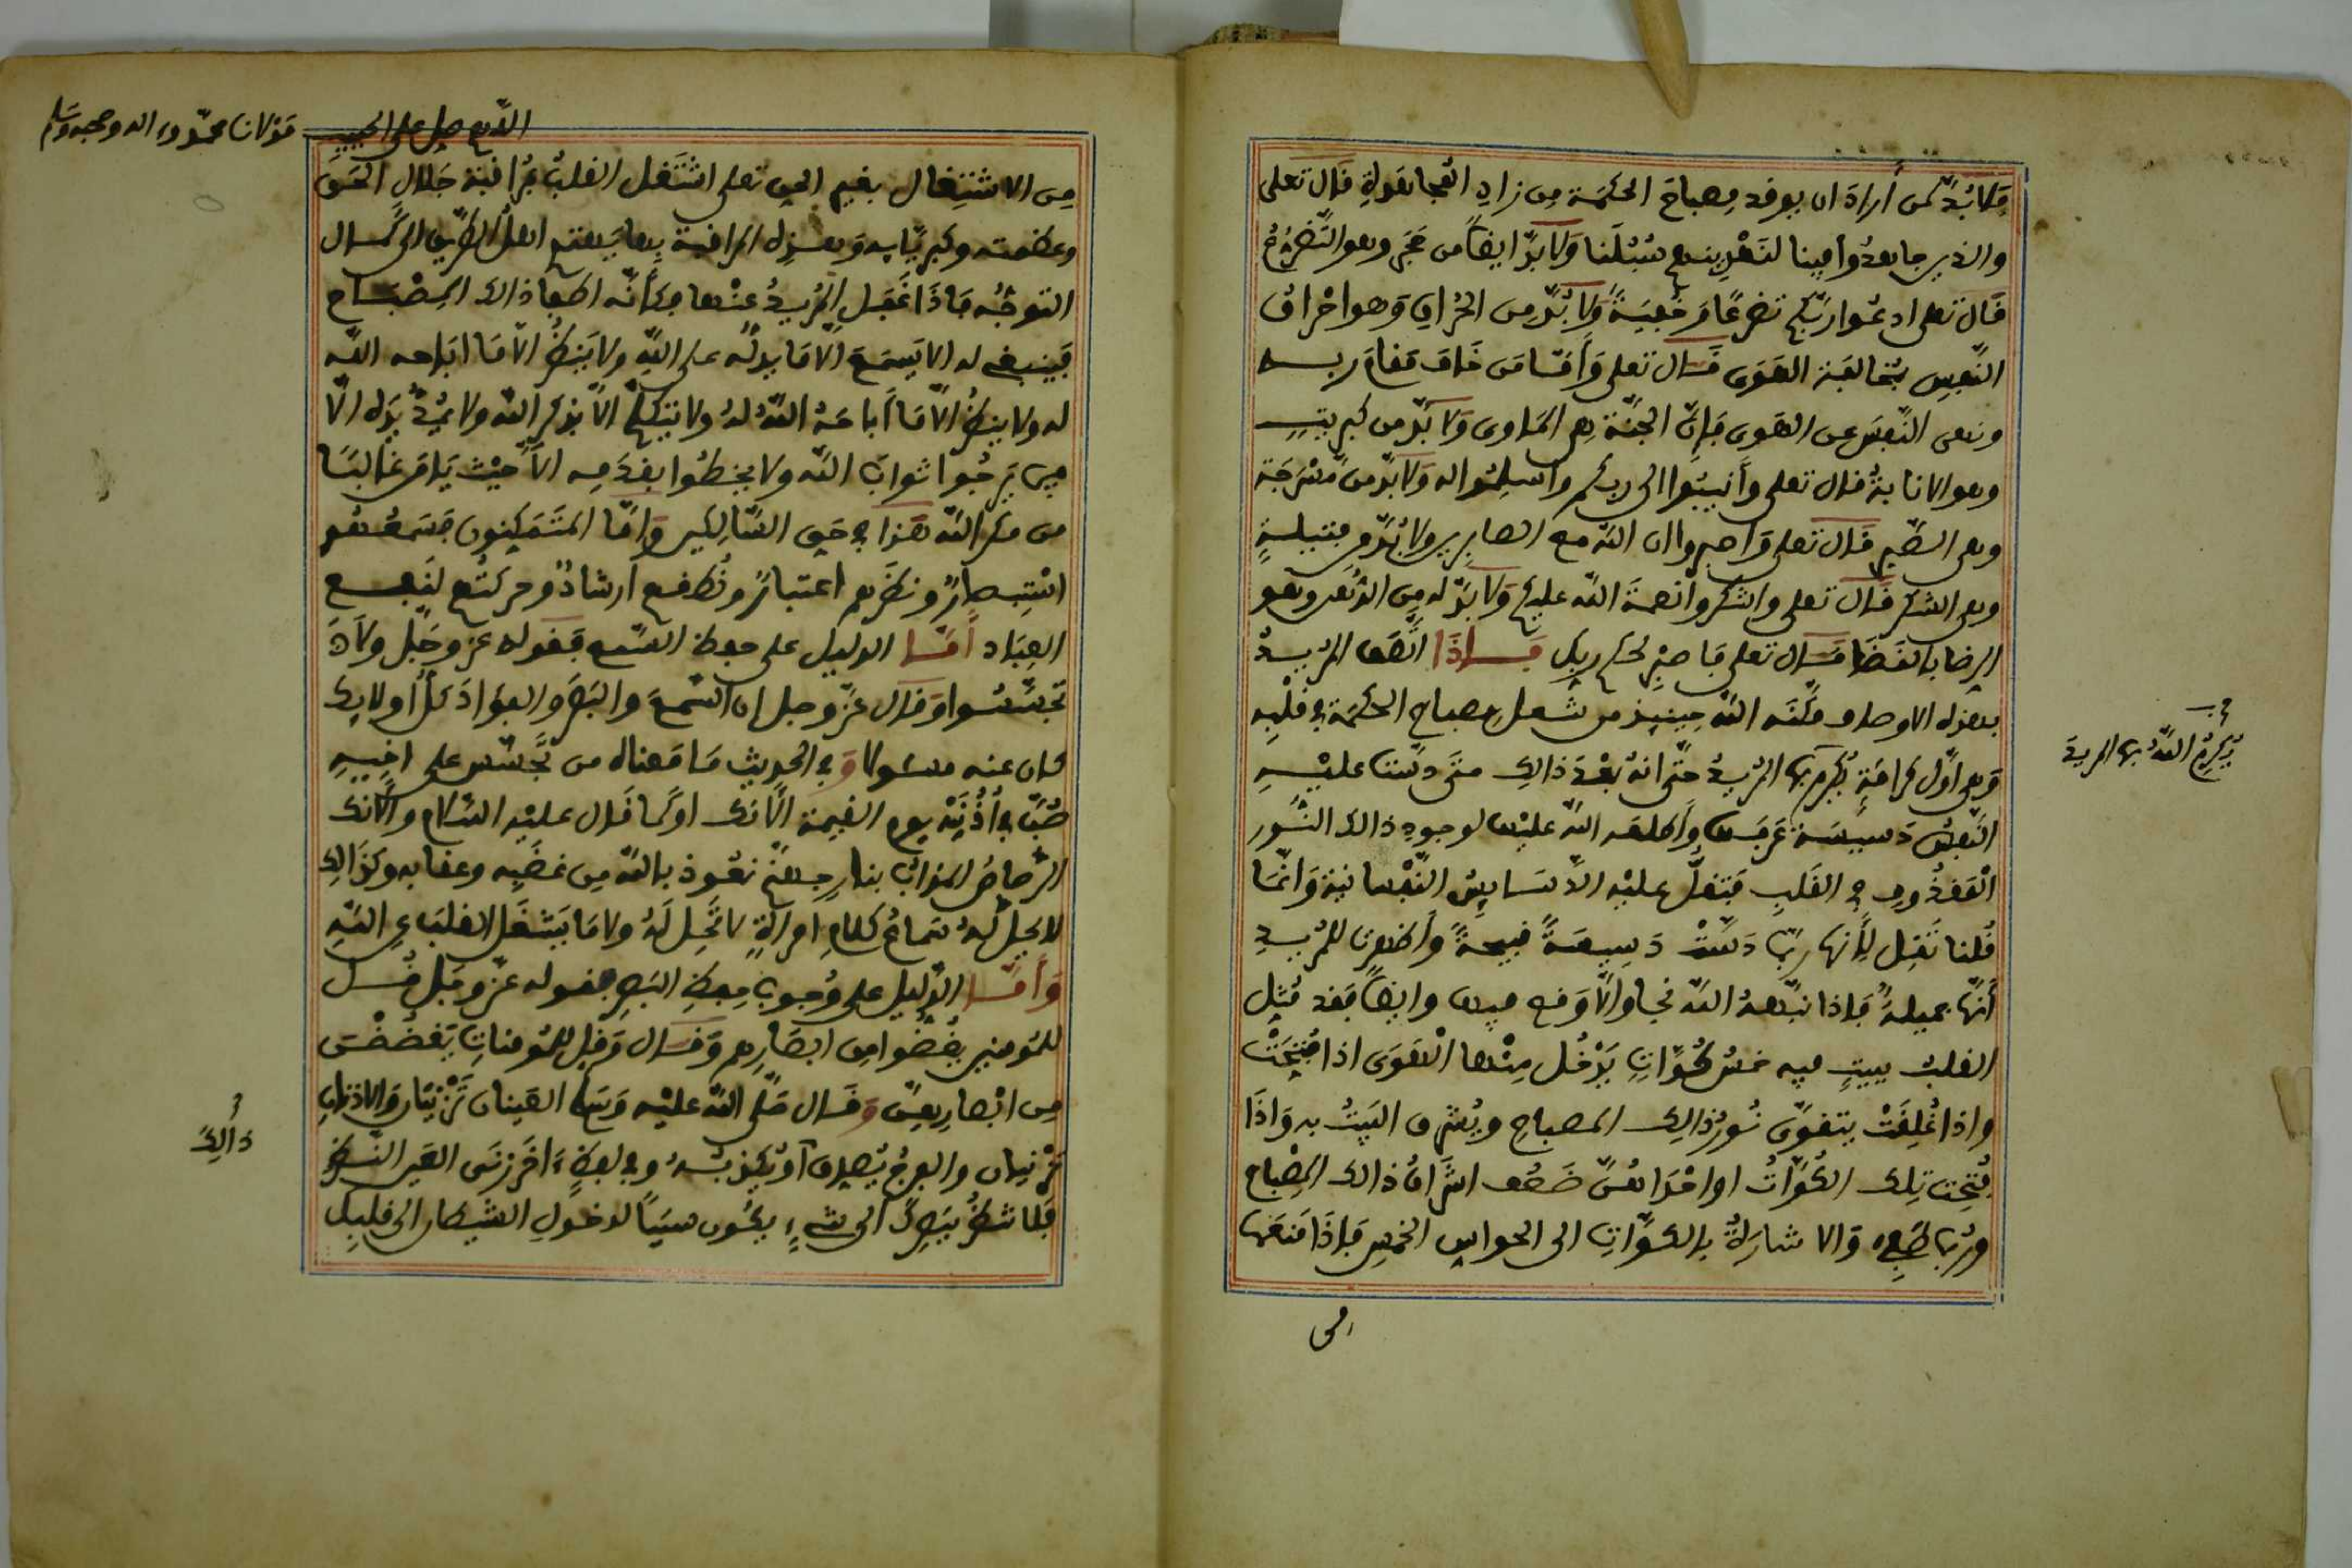 فلا بد لمن أراد ان يوقد مصباح الحكمة من زاد المجاهدة قال تعلى
والذين جاهدوا فينا لنهدينهم سُبُلَنا ولا بدّ ايضاً من حَجَرٍ وهو التّضرُّع
قال تعلى ادعوا ربّكم تضرعًا وخُفيَةً ولا بُدّ من الحُراقِ وهو احْراق
النّفس بمخالفة الهَوى قال تعلى وَأمّا من خاف مقامَ ربه
ونهى النّفسَ عن الهوى فإنّ الجنّة هي المأوى ولا بدّ من كبريتٍ
وهو الانابةُ قال تعلى وأَنيبُوا الى ربكم وأسلِمُوا له ولا بدّ من مَسْرَجَة
وهى الصّبر قال تعلى واصبروا ان الله مع الصابرين ولا بُدّ من فتيلةٍ
وهى الشكر قال تعلى واشكروا نعمة الله عليكم ولا بدّ له من الدُّهن وهو
الرضا بالقَضَا قال تعلى فاصبِرْ لحكم ربك فإذا اتّصَف المُريدُ
بهذه الاوصاف مكّنه الله حينيذ من شعل مصباح الحكمة في قلبِه
وهى اوّل كرامَةٍ يُكرم بها المُريدُ حتّى انهُ بعْدَ ذالِك متَى دسّت عليْه
النّفسُ دَسيسَة عَرفَها وأطلعه الله عليْها لوجودِ ذالك النُّور
المَقذُوفِ في القَلبِ فتقلُّ عليْه الدّسَايِسُ النّفْسانية وَانّمَا
قُلنا تَقِل لأنها ربّما دسّتْ دَسِيسَةً قبيحةً وأظهرت للمُريدِ
أنّها جميلةٌ فإذا نبّههُ الله نجا والّا وَقع فيها وايضاً فقد مُثِل
القلبُ ببيتٍ فيه خمسُ كُوّاتٍ يَدْخُل مِنْها الْهَوَى اذا فُتِحَتْ
واذا غُلِقَتْ يتقوّى نُورُ ذالِك المصباحِ ويُشرق البَيتُ به وَاذَا
فُتِحت تِلك الكُوّاتُ او احْدَاهُنّ ضَعُف اشْرَاقُ ذالك المِصْباح
وربّما طَفِئ والاشارةُ بالكُوّاتِ الى الحواسِ الخمسِ فإذَا مَنعَها
من
صح
يُكرِمُ اللهُ بها المريدَ
اللهم صل على الحبيب مَوْلانا محمّد وءاله وصحبه وسلم
مِن الاشتِغال بغير الحق تعلى اشتَغل القلبُ بمُراقبة جَلالِ الحَق
وعظمته وكبريَايِه وَهذه المراقبة
التوجُّه فَاذَا غَفَل المُريدُ عنْها فكأنّه اطفأ ذالك المِصْبَاح
فينبغي له الا يَسمَعَ الّا مَا يدلّه على اللهِ ولا يَنظُرُ الّا مَا اباحه الله
له ولا ينظُرُ الّا مَا أباحَهُ اللهُ لهُ ولا يتكلّمُ الّا بذكرِ الله ولا يمُدُّ يَدَه الّا
فيمن يَرجُوا ثوابَ الله ولا يخطُوا بقدَمِه الّا حيْث يَامَن غالبًا
من مكر الله هَذا في حَقِ السّالِكين وَامّا المتَمَكِنون فسَمعُهُم
اسْتِبصارٌ ونظَرهم اعتبارٌ ونُطقهم ارشادٌ وحركتُهم لنَفع
العِبَاد أمّا الدليل على حفظ السّمع فقوله عز وجَلّ ولَا
تجسّسُوا وقال عزّ وجل ان السّمعَ والبَصَر والفؤَادَ كلُّ أولايِك
كان عنه مسئولا وَفي الحديث مَا مَعناه من تجَسّس على اخِيهِ
صُبّ في أذُنيْه يوم القيمة الآنُك اوكما قال عليْه السّلام والآنُك
الرّصاصُ المُذابُ بنارِ جهنّم نعُوذ بالله مِن غضبِه وعقابه وكذالك
لا يحِل لهُ سَماعُ كلام امرأةٍ لا تحِل لَهُ ولا مَا يَشغَل القلبَ عن اللهِ
وَأمّا الدّليل على وُجوبِ حِفظ البَصرِ فقوله عزّ وجَلّ قُل
للمُومنين يغُضّوا من ابصَارِهم وَقال وَقل للمُومناتِ يَغضُضْنَ
مِن ابْصارِهِنّ وَقال صَلّى الله عليْه وَسَلم العَينان تَزْنيَان والاذنانِ
تزنيان والفرجُ يُصدِق أوْ يُكذِبُهُ وفي لفظٍ ءاخَر زنَى العَين النّظر
فلا شكّ يَصِلُ الى شيءٍ يكُون سبَباً لدخولِ الشيطان الى قلبِك
ذالِكَ